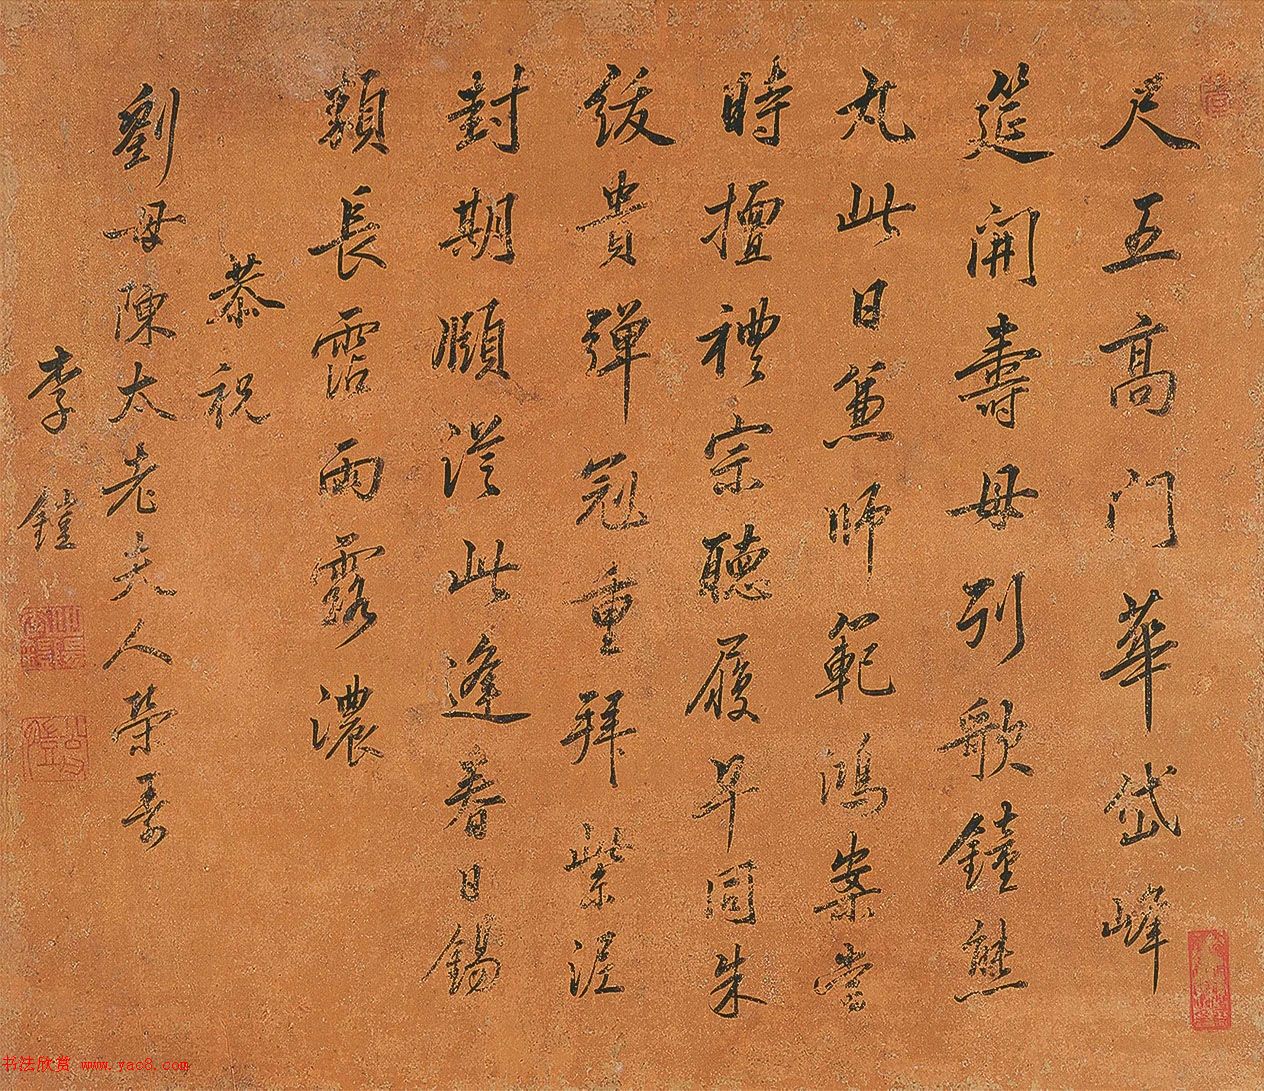 尺五高门華岱峰
筵開壽母引歌鐘熊
丸此日兼師範鴻案當
時擅禮宗聽履早同朱
紱貴彈冠重拜紫泥
封期頤從此逢春日錫
類長霑雨露濃
恭祝
劉母陳太老夫人榮壽
李鎧
书法欣赏 www.yac8.com